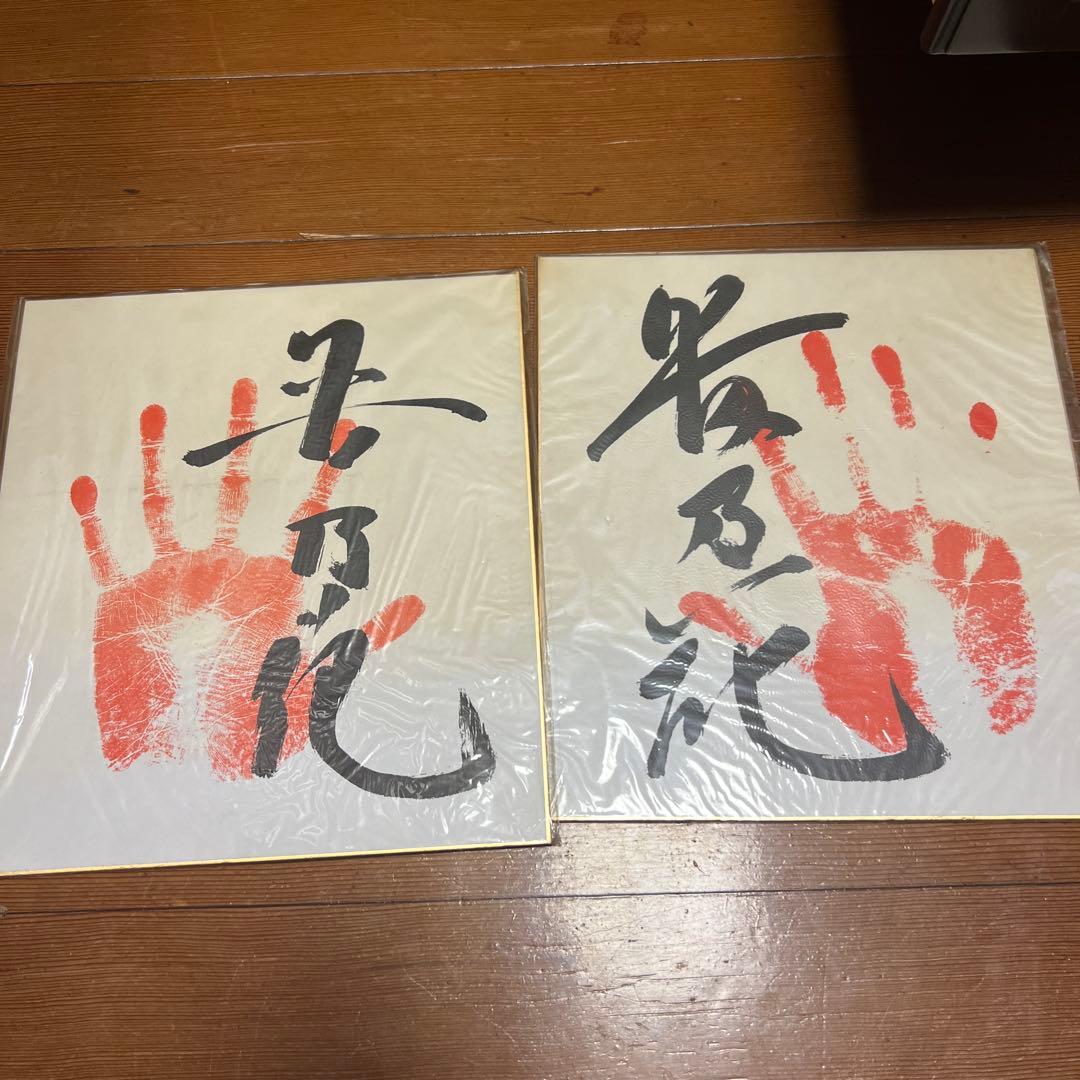 若乃花
貴乃花